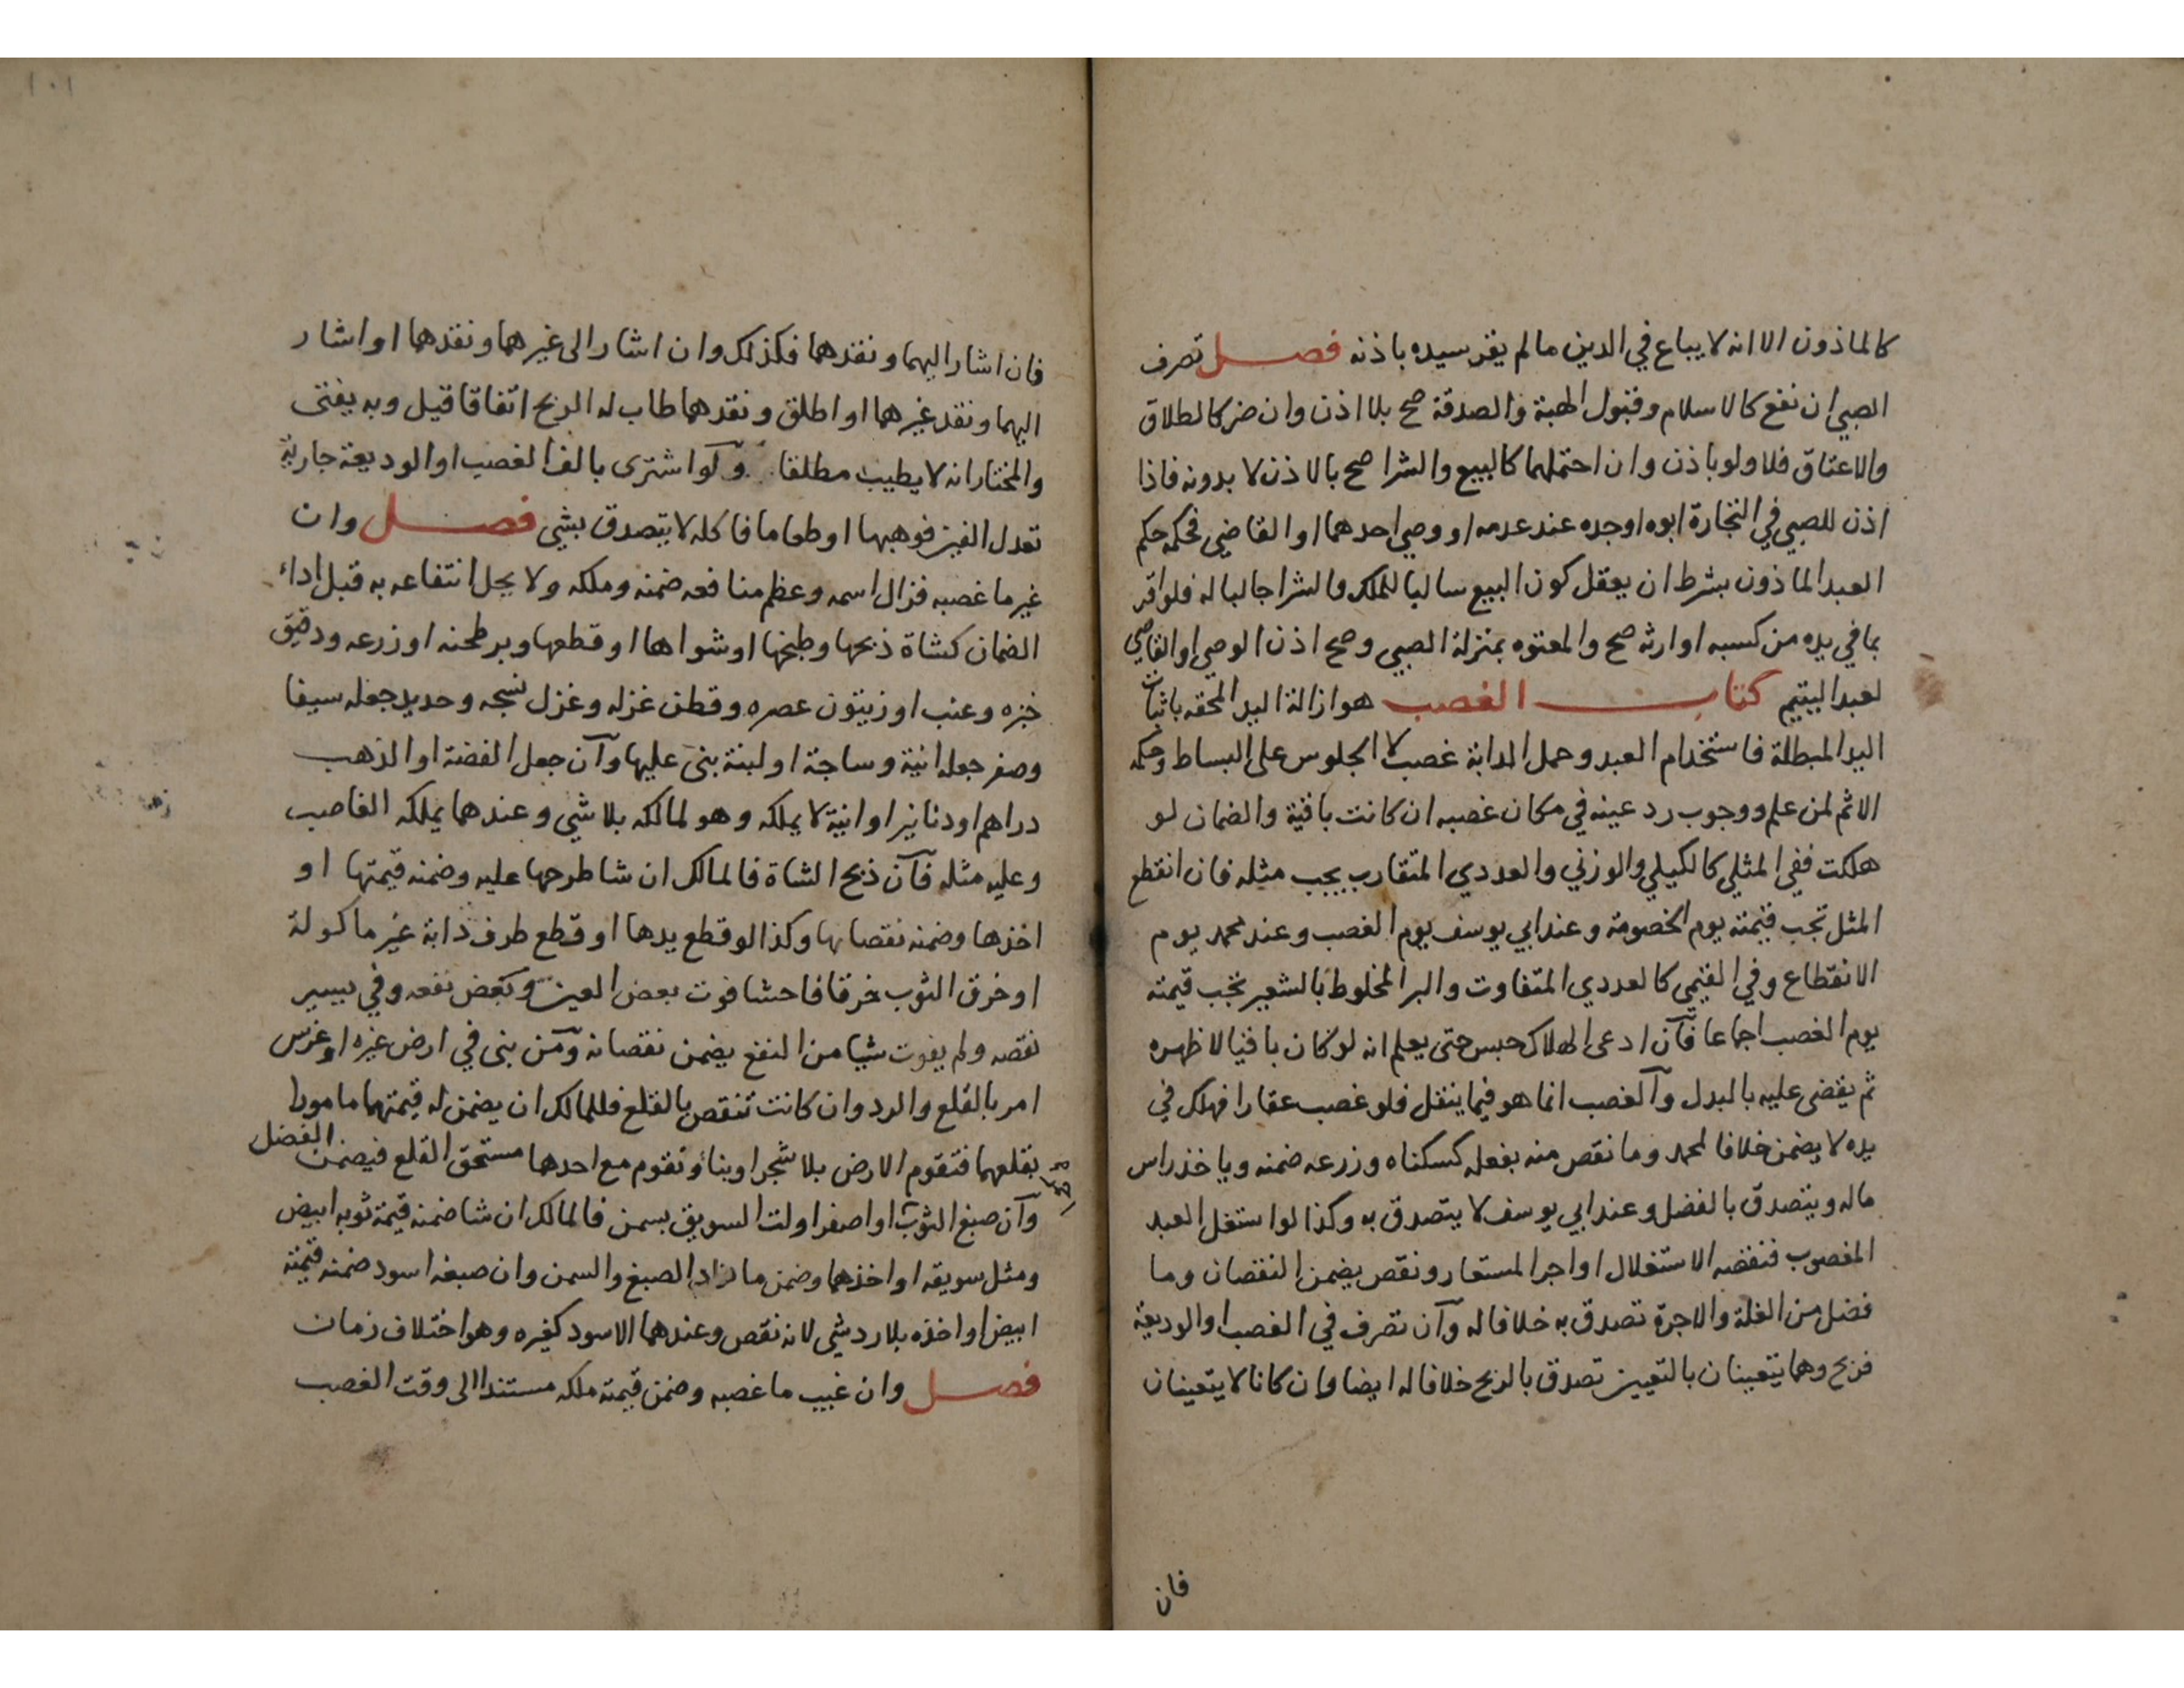 كالماذون الا انه لا يباع في الدين ما لم يقر سيده باذنه فصل تصرف
الصبي ان نفع كالاسلام وقبول الهبة والصدقة صح بلا اذن وان ضر كالطلاق
والاعتاق فلا ولو باذن وان احتملهما كالبيع والشرا صح بالاذن لا بدونه فاذا
اذن للصبي في التجارة ابوه او جده عند عدمه او وصي احدهما او القاضي فحكمه حكم
العبد الماذون بشرط ان يعقل كون البيع سالبا للملك والشرا جالبا له فلو اقر
بما في يده من كسبه او ارثه صح والمعتوه بمنزلة الصبي وصح اذن الوصي او القاضي
لعبد اليتيم كتاب الغصب هو ازالة اليد المحقه باثبات
اليد المبطلة فاستخدام العبد وحمل الدابة غصب لا الجلوس على البساط وحكمه
الاثم لمن علم ووجوب رد عينه في مكان غصبه ان كانت باقية والضمان لو
هلكت ففي المثلي كالكيلي والوزني والعددي المتقارب يجب مثله فان انقطع
المثل تجب قيمته يوم الخصومة وعند ابي يوسف يوم الغصب وعند محمد يوم
الانقطاع وفي القيمي كالعددي المتفاوت والبر المخلوط بالشعير تجب قيمته
يوم الغصب اجماعا فان ادعى الهلاك حبس حتى يعلم انه لو كان باقيا لاظهره
ثم يقضى عليه بالبدل والغصب انما هو فيما ينقل فلو غصب عقارا فهلك في
يده لا يضمن خلافا لمحمد وما نقص منه بفعله كسكناه وزرعه ضمنه وياخذ راس
ماله ويتصدق بالفضل وعند ابي يوسف لا يتصدق به وكذا لو استغل العبد
المغصوب فنقصه الاستغلال او اجر المستعار ونقص يضمن النقصان وما
فضل من الغلة والاجرة تصدق به خلافا له وان تصرف في الغصب او الوديعة
فربح وهما يتعينان بالتعيين تصدق بالربح خلافا له ايضا وان كانا لا يتعينان
فان
١٠١
فان اشار اليهما ونقدهما فكذلك وان اشار الى غيرهما ونقدهما او اشار
اليهما ونقد غيرهما او اطلق ونقدهما طاب له الربح اتفاقا قيل وبه يفتى
والمختار انه لا يطيب مطلقا ولو اشترى بالف الغصب او الوديعة جارية
تعدل الفين فوهبها او طعاما فاكله لا يتصدق بشي فصل وان
غير ما غصبه فزال اسمه وعظم منافعه ضمنه وملكه ولا يحل انتفاعه به قبل اداء
الضمان كشاة ذبحها وطبخها او شواها او قطعها وبر طحنه او زرعه ودقيق
خبزه وعنب او زيتون عصره وقطن غزله وغزل نسجه وحديد جعله سيفا
وصفر جعله انية وساجة او لبنة بنى عليها وان جعل الفضة او الذهب
دراهم او دنانير او انية لا يملكه وهو لمالكه بلا شي وعندهما يملكه الغاصب
وعليه مثله فان ذبح الشاة فالمالك ان شا طرحها عليه وضمنه قيمتها او
اخذها وضمنه نقصانها وكذا لو قطع يدها او قطع طرف دابة غير ماكولة
او خرق الثوب خرقا فاحشا فوت بعض العين وبعض نفعه وفي يسير
نقصه ولم يفوت شيا من النفع يضمن نقصانه ومن بنى في ارض غيره او غرس
امر بالقلع والرد وان كانت تنقص بالقلع فللمالك ان يضمن له قيمتهما مامورا
بقلعهما فتقوم الارض بلا شجر او بناء وتقوم مع احدها مستحق القلع فيضمن الفضل
وان صبغ الثوب او اصفر او لت السويق بسمن فالمالك ان شا ضمنه قيمة ثوبه ابيض
ومثل سويقه او اخذهما وضمن ما زاد الصبغ والسمن وان صبغه اسود ضمنه قيمته
ابيض او اخذه بلا رد شي لانه نقص وعندهما الاسود كغيره وهو اختلاف زمان
فصل وان غيب ما غصبه وضمن قيمته ملكه مستندا الى وقت الغصب